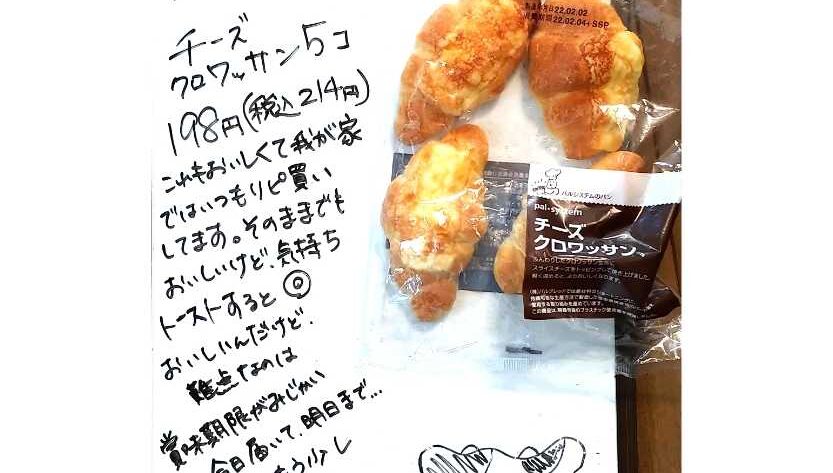 チーズ
クロワッサン5コ
198円(税込214円)
これもおいしくて我が家
ではいつもリピ買い
してます。そのままでも
おいしいけど、気持ち
トーストすると◎
おいしいんだけど、
難点なのは
賞味期限がみじかい
今日届いて、明日まで…
もう少し
22.02.02
22.02.04+SSP
パルシステムのパン
pal*system
チーズ
クロワッサン
ふんわりしたクロワッサン生地に
スライスチーズをトッピングして焼き上げました。
軽く温めると、よりおいしくなります。